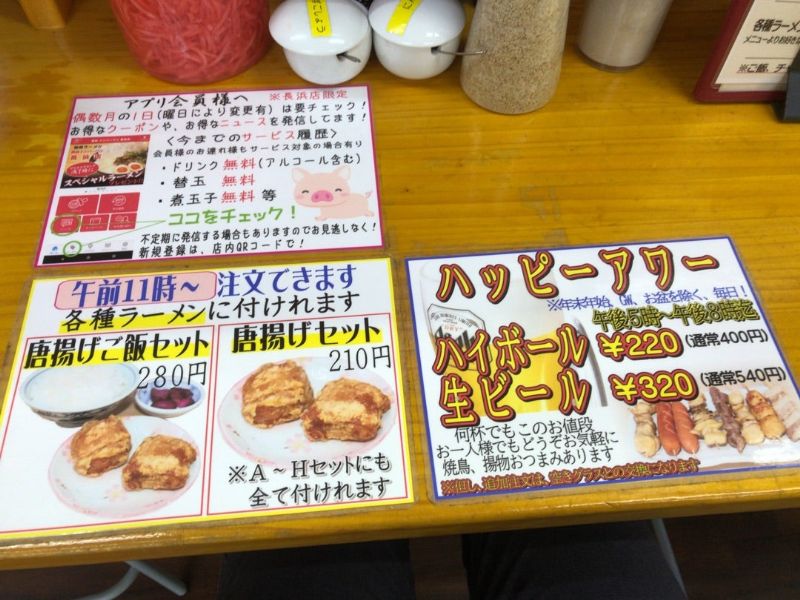 こしょう
各種ラーメン
メニューよりお好き
※ご飯、チ
アプリ会員様へ ※長浜店限定
偶数月の1日(曜日により変更有)は要チェック!
お得なクーポンや、お得なニュースを発信してます!
<今までのサービス履歴>
会員様のお連れ様もサービス対象の場合有り
・ドリンク 無料(アルコール含む)
・替玉 無料
・煮玉子無料 等
スペシャルラーメン
ココをチェック!
不定期に発信する場合もありますのでお見逃しなく!
新規登録は、店内QRコードで!
午前11時~ 注文できます
各種ラーメンに付けれます
唐揚げご飯セット
280円
唐揚げセット
210円
※A~Hセットにも
全て付けれます
ハッピーアワー
※年末年始、GW、お盆を除く、毎日!
午後5時~午後8時迄
ハイボール ¥220 (通常400円)
生ビール ¥320 (通常540円)
何杯でもこのお値段
お一人様でもどうぞお気軽に
焼鳥、揚物おつまみあります
※但し、追加注文は、空きグラスとの交換になります